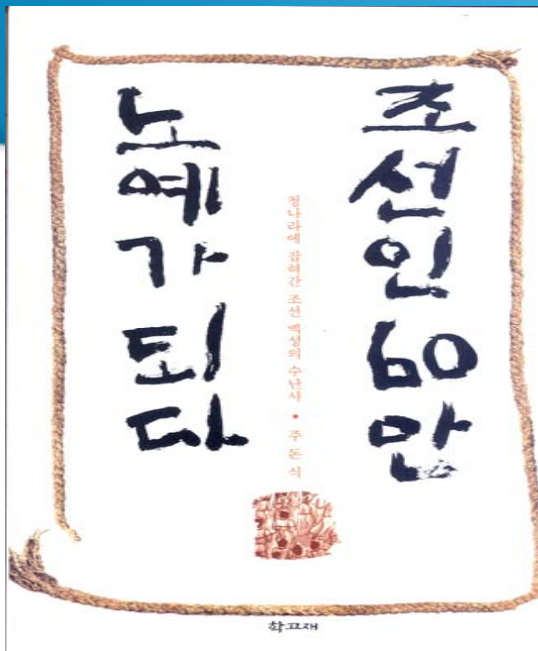 조선인 60만
노예가 되다
청나라에 잡혀간 조선 백성의 수난사 • 주돈식
학고재